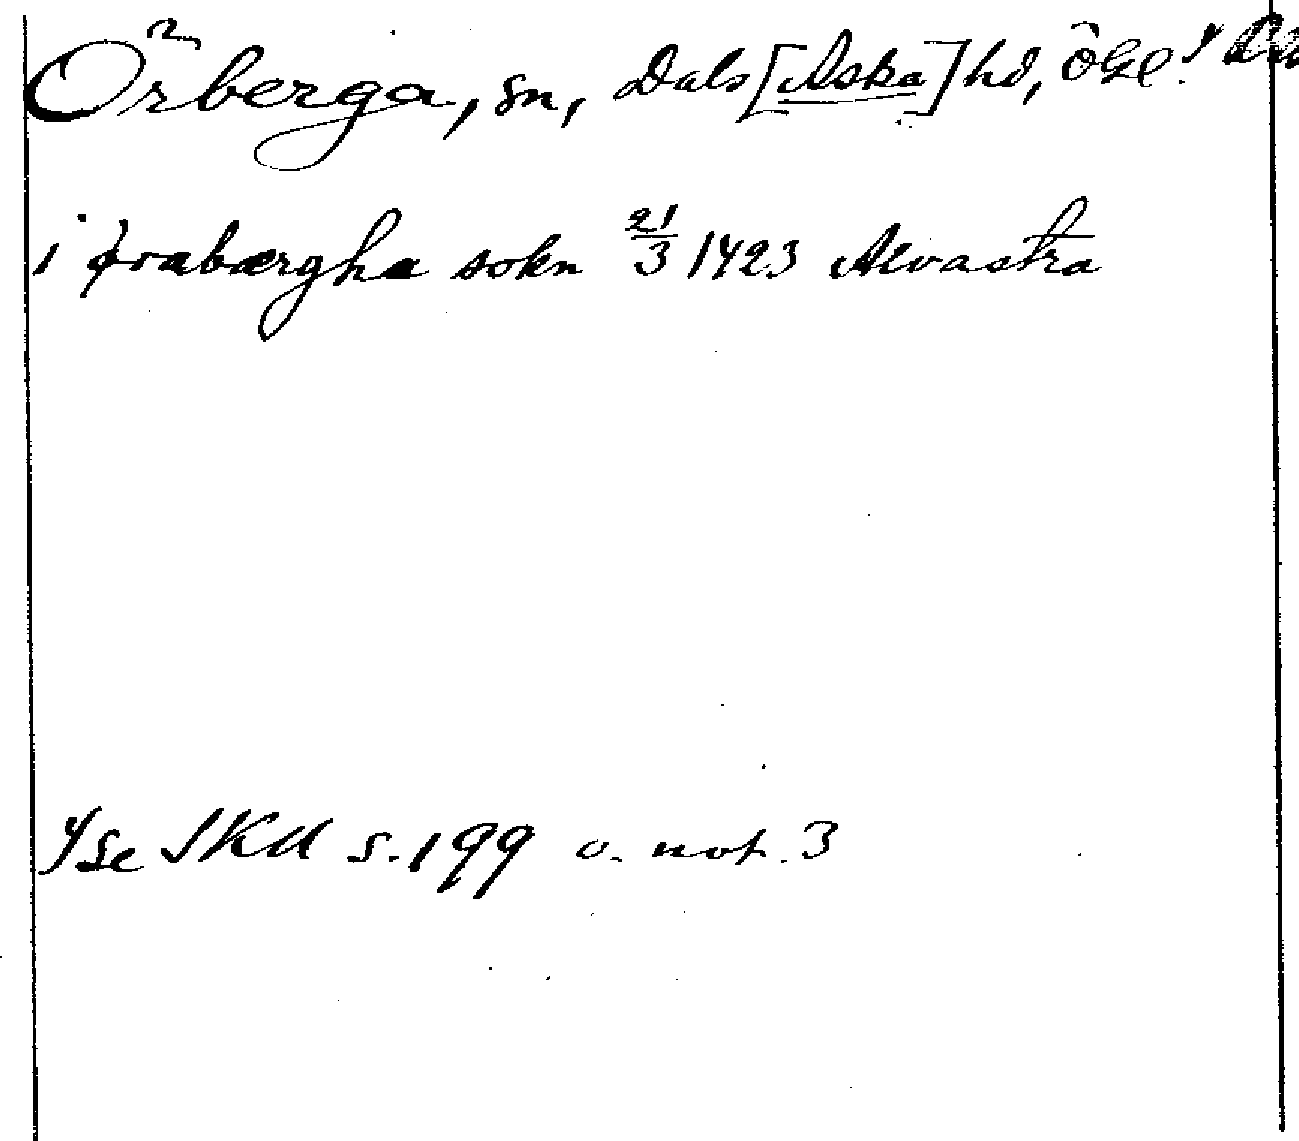 Örberga, sn, Dals [Aska] hd, Ögl. 1)
i ørabærgha sokn 21/3 1423 Alvastra
1) se SKU s. 199 o. not. 3